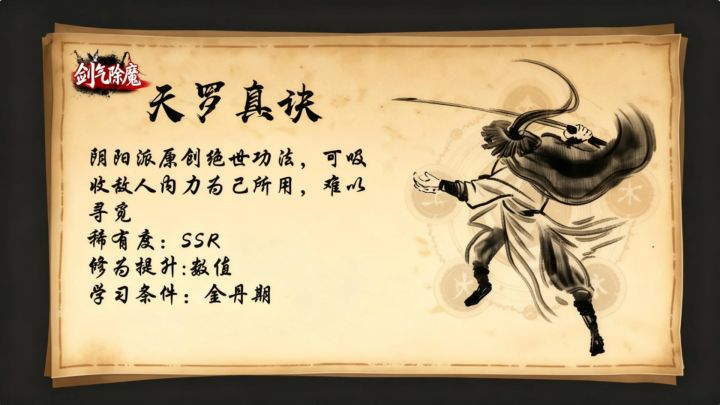 剑气除魔
天罗真诀
阴阳派原创绝世功法，可吸
收敌人内力为己所用，难以
寻觅
稀有度：SSR
修为提升:数值
学习条件：金丹期
土
木
火
水